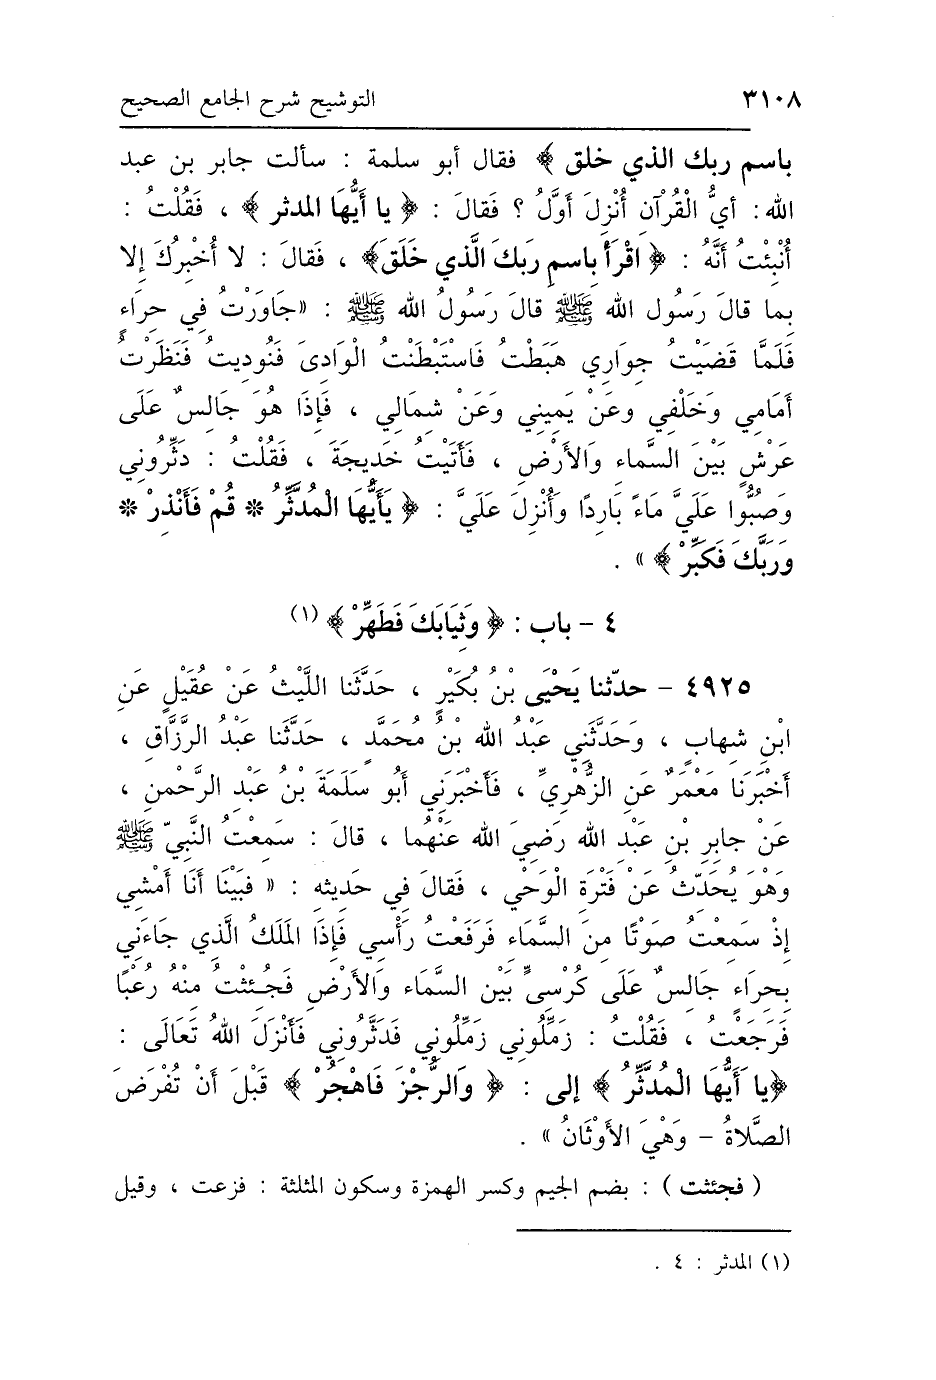 ٣١٠٨ التوشيح شرح الجامع الصحيح
باسم ربك الذي خلق ﴾ فقال أبو سلمة : سألت جابر بن عبد
الله : أيُّ الْقُرْآنِ أُنْزِلَ أَوَّلُ ؟ فَقَالَ : ﴿ يا أَيُّهَا المدثر ﴾ ، فَقُلْتُ :
أُنْبِئْتُ أَنَّهُ : ﴿ اقْرَأْ بِاسمِ رَبِكَ الَّذي خَلَقَ﴾ ، فَقَالَ : لا أُخْبِرُكَ إِلا
بِما قالَ رَسُول الله ﷺ قالَ رَسُولُ الله ﷺ : «جَاوَرْتُ فِي حِرَاءٍ
فَلَمَّا قَضَيْتُ جِوارِي هَبَطْتُ فَاسْتَبْطَنْتُ الْوَادِىَ فَنُودِيتُ فَنَظَرْتُ
أَمَامِي وَخَلْفِي وعَنْ يَمِينِي وَعَنْ شمالي ، فَإِذَا هُوَ جَالِسٌ عَلَى
عَرْشٍ بَيْنَ السَّماءِ والأَرْضِ ، فَأَتَيْتُ خَدِيجَةَ ، فَقُلْتُ : دَثِّرُونِي
وَصُبُّوا عَلَيَّ مَاءً بَارِدًا وَأُنْزِلَ عَلَيَّ : ﴿ يَأَيُّهَا الْمُدَّثِّرُ * قُمْ فَأَنْذِرْ *
وَرَبَّكَ فَكَبِّرْ ﴾ » .
٤ - باب : ﴿ وَثِيَابَكَ فَطَهِّرْ ﴾ (١)
٤٩٢٥ - حدّثنا يَحْيَى بْنُ بُكَيْرٍ ، حَدَّثَنا اللَّيْثُ عَنْ عُقَيْلٍ عَنِ
ابْنِ شِهابٍ ، وَحَدَّثَنِي عَبْدُ الله بْنُ مُحَمَّدٍ ، حَدَّثَنَا عَبْدُ الرَّزَّاقِ ،
أَخْبَرَنَا مَعْمَرٌ عَنِ الزُّهْرِيِّ ، فَأَخْبَرَنِي أَبُو سَلَمَةَ بْنُ عَبْدِ الرَّحْمنِ ،
عَنْ جابِرِ بْنِ عَبْدِ الله رَضِيَ الله عَنْهُما ، قالَ : سَمِعْتُ النَّبِيّ ﷺ
وَهْوَ يُحَدِّثُ عَنْ فَتْرَةِ الْوَحْيِ ، فَقالَ فِي حَدِيثِهِ : « فَبَيْنَا أَنَا أَمْشِي
إِذْ سَمِعْتُ صَوْتًا مِنَ السَّمَاءِ فَرَفَعْتُ رَأْسِي فَإِذَا المَلَكُ الَّذِي جَاءَنِي
بِحِرَاءٍ جَالِسٌ عَلَى كُرْسِيٍّ بَيْنَ السَّمَاءِ وَالأَرْضِ فَجُئِثْتُ مِنْهُ رُعْبًا
فَرَجَعْتُ ، فَقُلْتُ : زَمِّلُونِي زَمِّلُونِي فَدَثَّرُونِي فَأَنْزَلَ اللهُ تَعَالَى :
﴿يا أَيُّهَا الْمُدَّثِّرُ ﴾ إلى : ﴿ وَالرُّجْزَ فَاهْجُرْ ﴾ قَبْلَ أَنْ تُفْرَضَ
الصَّلاةُ - وَهْيَ الأَوْثَانُ » .
( فجئثت ) : بضم الجيم وكسر الهمزة وسكون المثلثة : فزعت ، وقيل
(١) المدثر : ٤ .